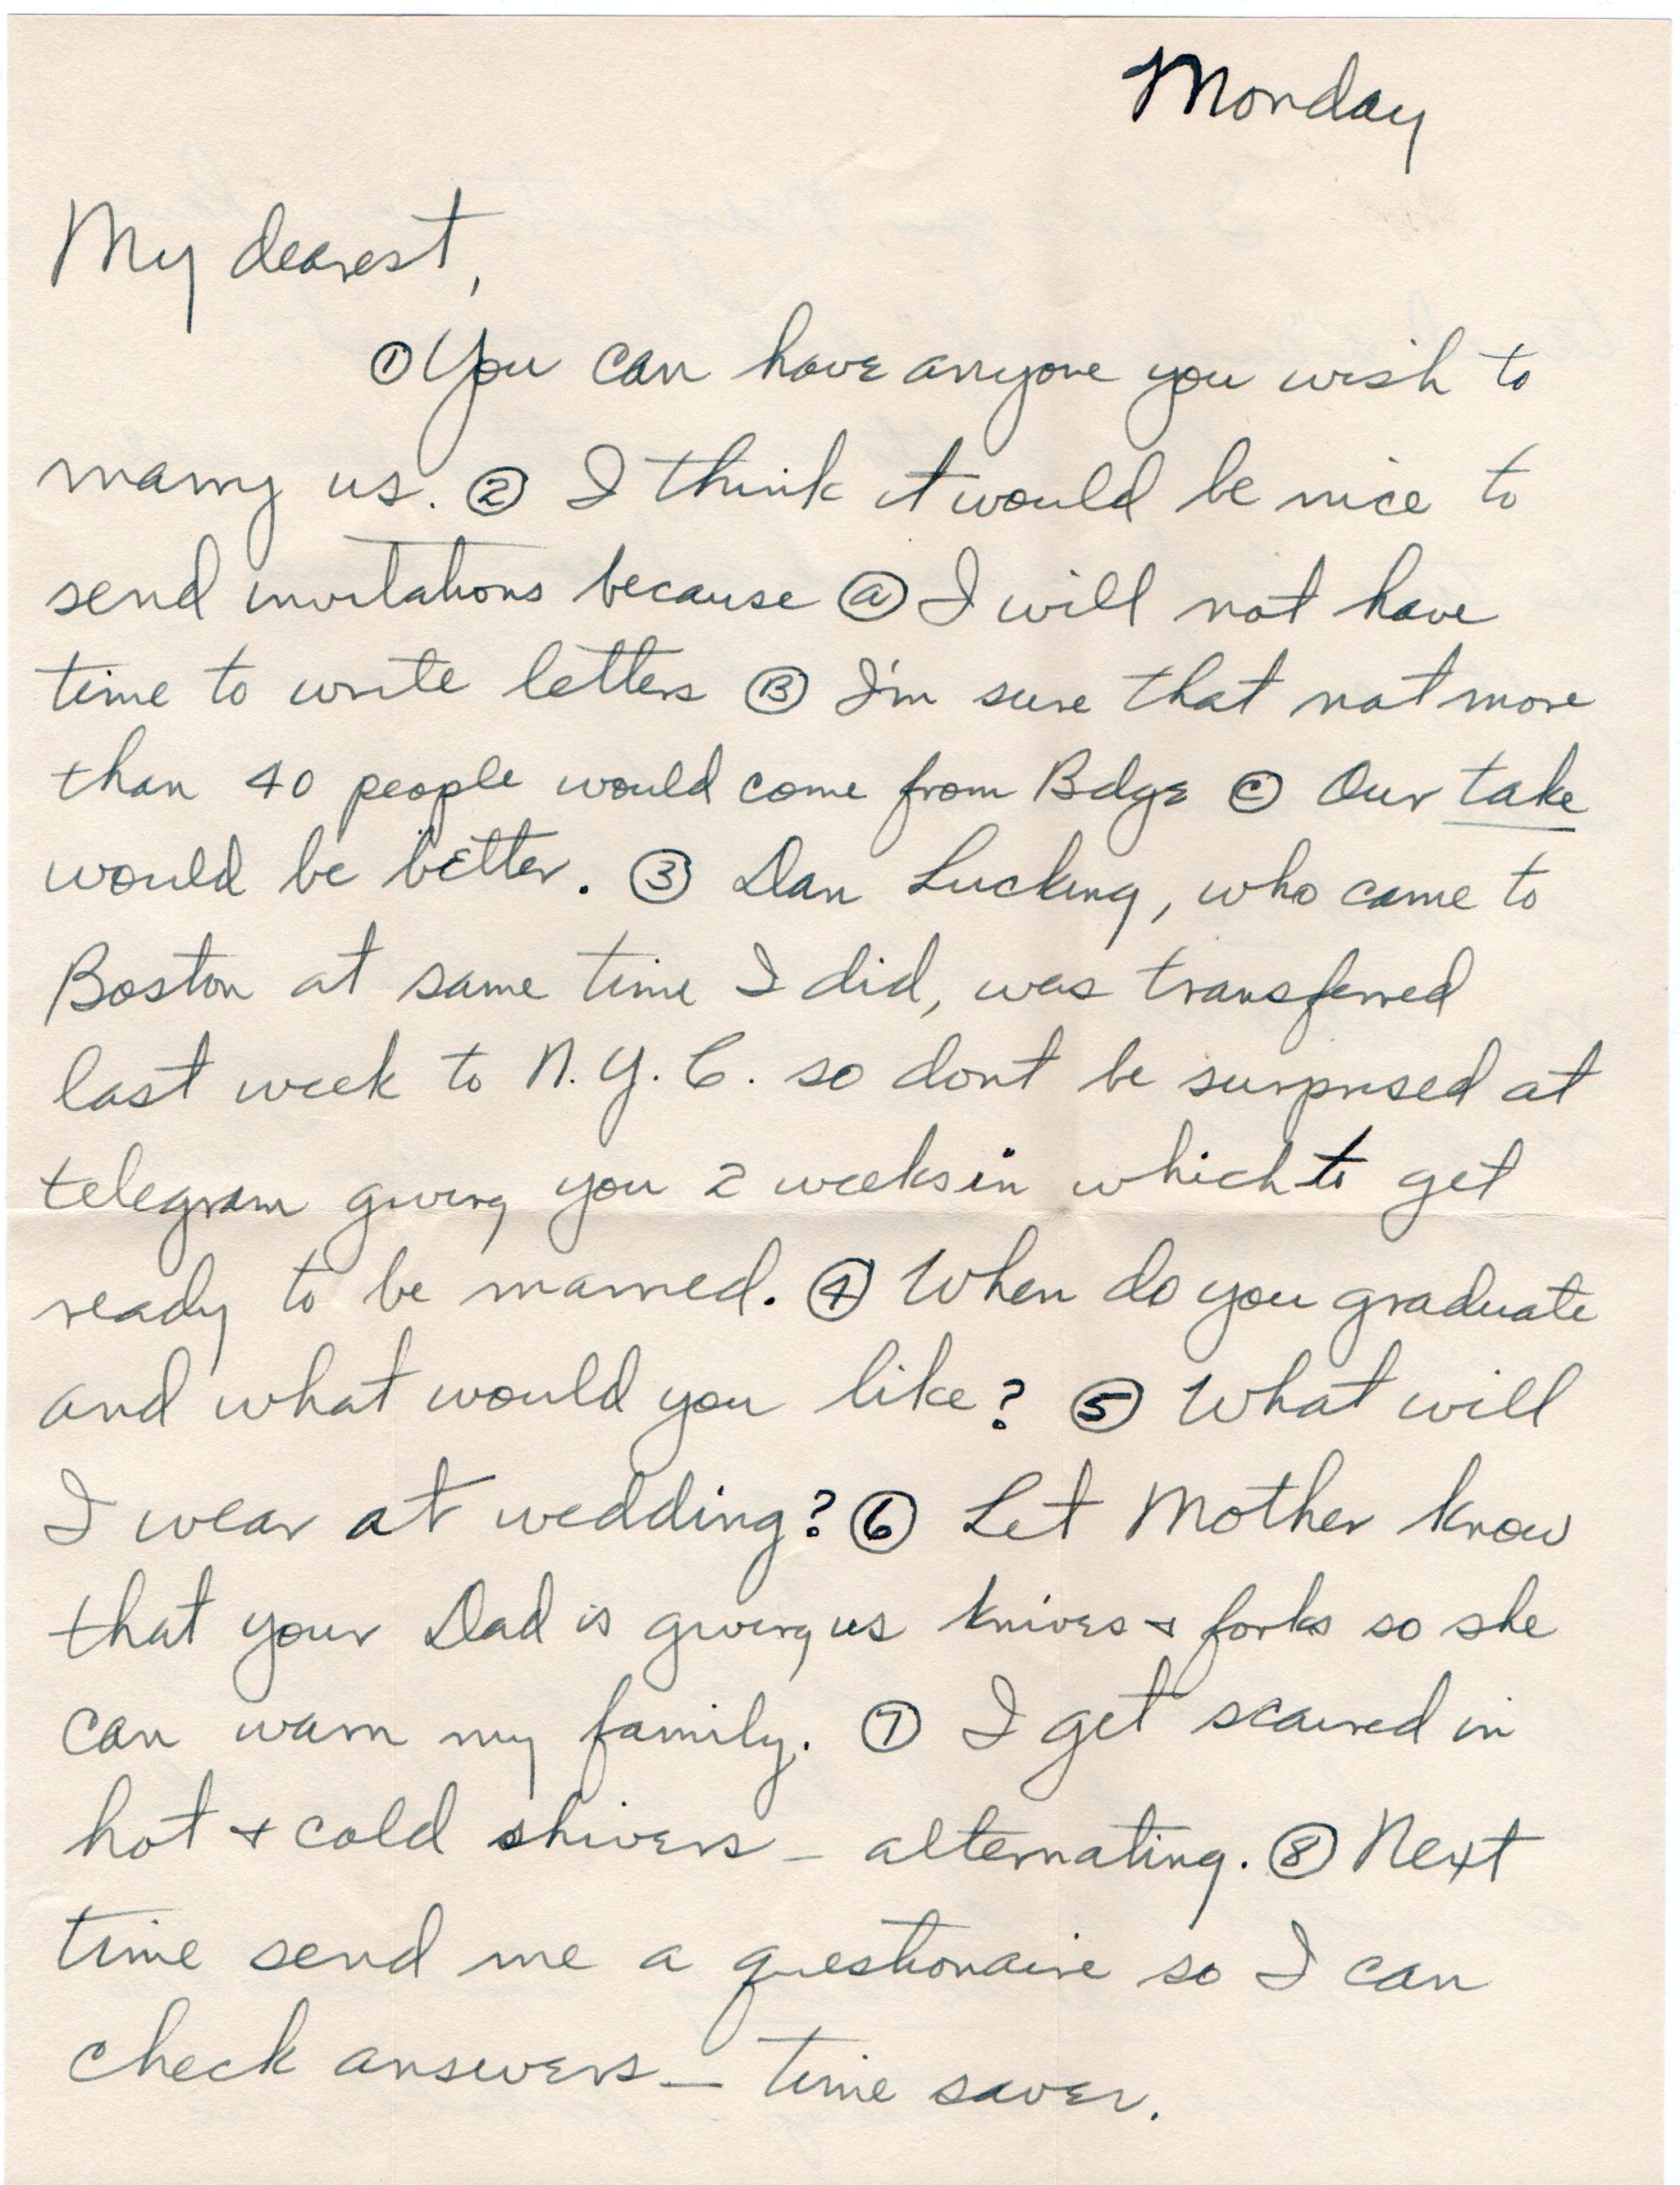 Monday
My dearest,
① You can have anyone you wish to
marry us. ② I think it would be nice to
send invitations because ⓐ I will not have
time to write letters Ⓑ I'm sure that not more
than 40 people would come from Bdge Ⓒ Our take
would be better. ③ Dan Lucking, who came to
Boston at same time I did, was transferred
last week to N.Y.C. so dont be surprised at
telegram giving you 2 weeks in which to get
ready to be married. ④ When do you graduate
and what would you like? ⑤ What will
I wear at wedding? ⑥ Let Mother know
that your Dad is giving us knives + forks so she
can warn my family. ⑦ I get scared in
hot + cold shivers – alternating. ⑧ Next
time send me a questionaire so I can
check answers – time saver.